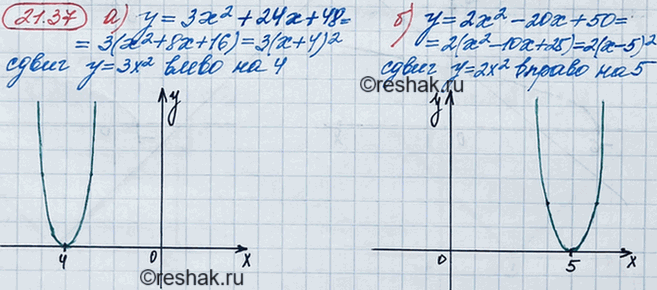 21.37 а) y = 3x² + 24x + 48 =
= 3(x² + 8x + 16) = 3(x + 4)²
сдвиг y = 3x² влево на 4
б) y = 2x² - 20x + 50 =
= 2(x² - 10x + 25) = 2(x - 5)²
сдвиг y = 2x² вправо на 5
y
4 0 x
©reshak.ru
y
0 5 x
©reshak.ru